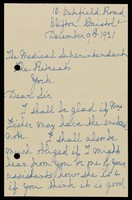 10 Oakfield Road,
Clifton, Bristol.
December 9th 1921
The Medical Superintendent
The Retreat
York.
Dear Sir,
I shall be glad if my
sister may have the
note. I shall also be
much obliged if I might
hear from you or one of your
assistants, how she is &
if you think it is good